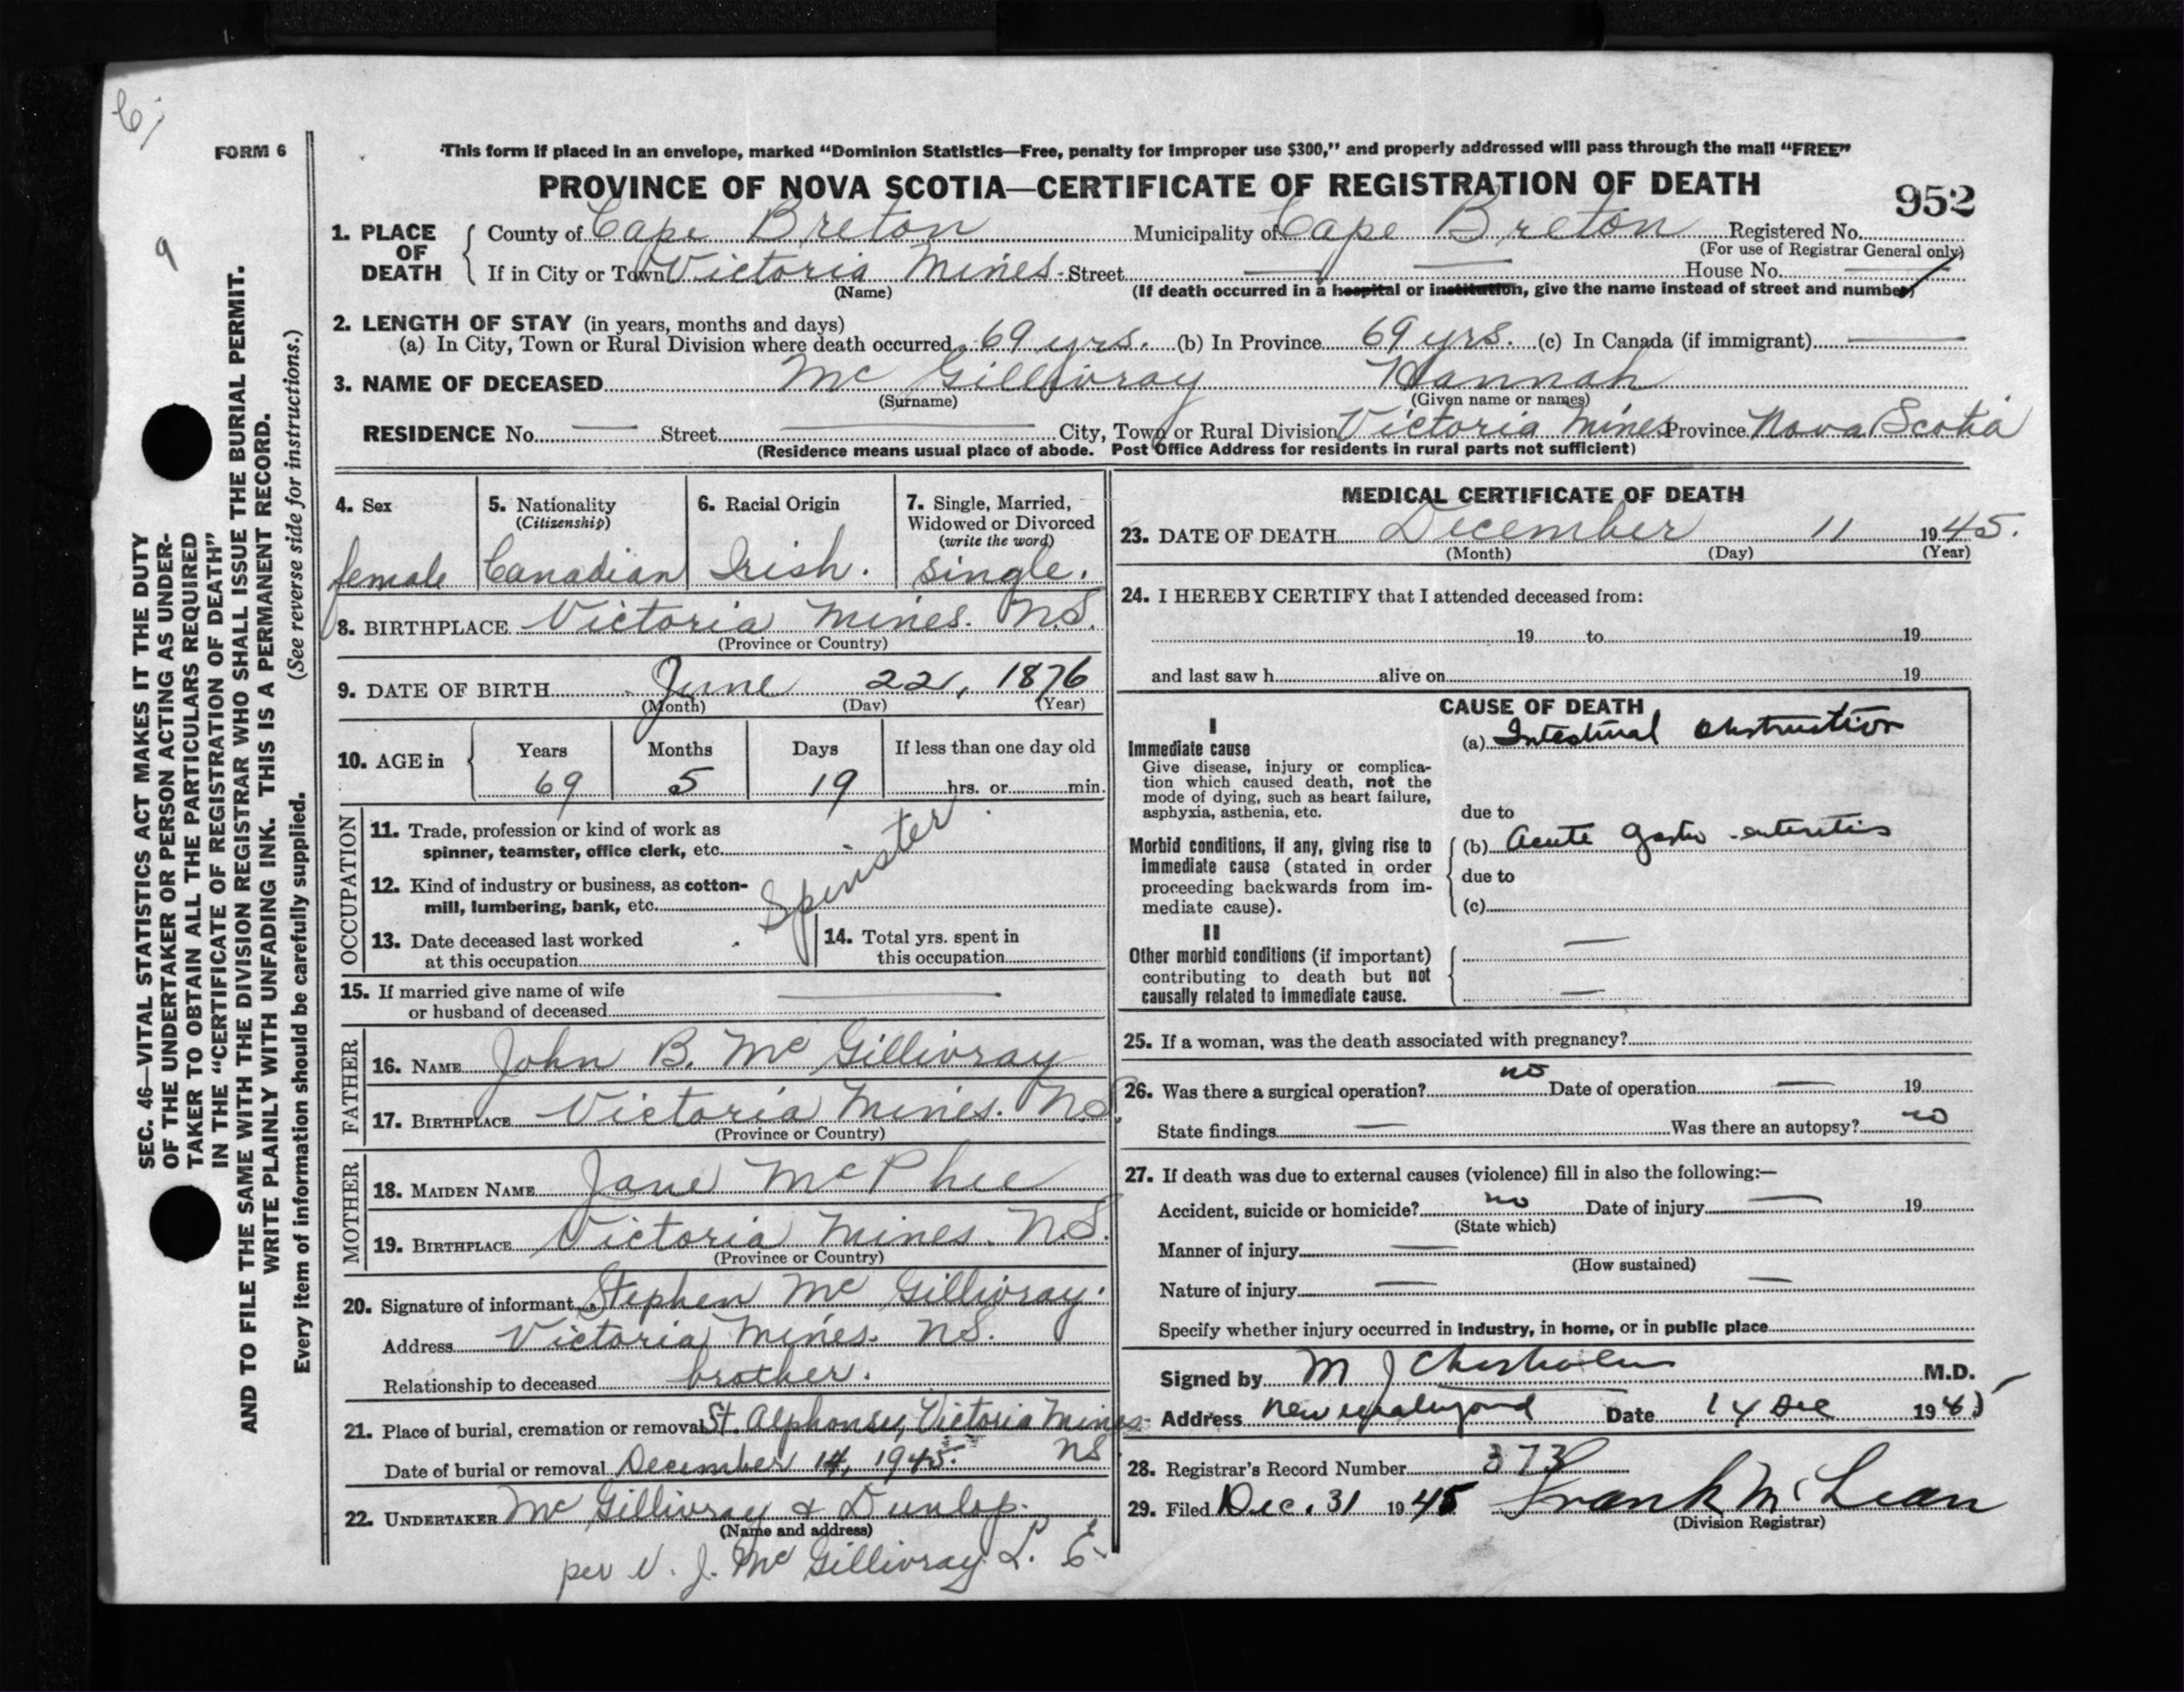 FORM 6
9
SEC. 46—VITAL STATISTICS ACT MAKES IT THE DUTY
OF THE UNDERTAKER OR PERSON ACTING AS UNDER-
TAKER TO OBTAIN ALL THE PARTICULARS REQUIRED
IN THE "CERTIFICATE OF REGISTRATION OF DEATH"
AND TO FILE THE SAME WITH THE DIVISION REGISTRAR WHO SHALL ISSUE THE BURIAL PERMIT.
WRITE PLAINLY WITH UNFADING INK. THIS IS A PERMANENT RECORD.
Every item of information should be carefully supplied. (See reverse side for instructions.)
This form if placed in an envelope, marked "Dominion Statistics—Free, penalty for improper use $300," and properly addressed will pass through the mail "FREE"
PROVINCE OF NOVA SCOTIA—CERTIFICATE OF REGISTRATION OF DEATH
952
1. PLACE OF DEATH
County of Cape Breton Municipality of Cape Breton Registered No.
(For use of Registrar General only)
If in City or Town Victoria Mines - Street — — House No. —
(Name) (If death occurred in a hospital or institution, give the name instead of street and number)
2. LENGTH OF STAY (in years, months and days)
(a) In City, Town or Rural Division where death occurred 69 yrs. (b) In Province 69 yrs. (c) In Canada (if immigrant) —
3. NAME OF DECEASED Mc Gillivray Hannah
(Surname) (Given name or names)
RESIDENCE No. — Street — City, Town or Rural Division Victoria Mines Province Nova Scotia
(Residence means usual place of abode. Post Office Address for residents in rural parts not sufficient)
4. Sex
female
5. Nationality
(Citizenship)
Canadian
6. Racial Origin
Irish.
7. Single, Married,
Widowed or Divorced
(write the word)
single.
8. BIRTHPLACE Victoria Mines. N.S.
(Province or Country)
9. DATE OF BIRTH June 22, 1876
(Month) (Day) (Year)
10. AGE in
Years Months Days If less than one day old
69 5 19 hrs. or min.
OCCUPATION
11. Trade, profession or kind of work as
spinner, teamster, office clerk, etc.
Spinster
12. Kind of industry or business, as cotton-
mill, lumbering, bank, etc.
13. Date deceased last worked
at this occupation
14. Total yrs. spent in
this occupation
15. If married give name of wife
or husband of deceased —
FATHER
16. NAME John B. Mc Gillivray
17. BIRTHPLACE Victoria Mines. N.S.
(Province or Country)
MOTHER
18. MAIDEN NAME Jane McPhee
19. BIRTHPLACE Victoria Mines. N.S.
(Province or Country)
20. Signature of informant Stephen Mc Gillivray.
Address Victoria Mines. N.S.
Relationship to deceased brother.
21. Place of burial, cremation or removal St. Alphonsus, Victoria Mines
Date of burial or removal December 14, 1945. NS.
22. UNDERTAKER Mc Gillivray & Dunlop.
(Name and address)
per V. J. Mc Gillivray L. E.
MEDICAL CERTIFICATE OF DEATH
23. DATE OF DEATH December 11 1945.
(Month) (Day) (Year)
24. I HEREBY CERTIFY that I attended deceased from:
19 to 19
and last saw h alive on 19
CAUSE OF DEATH
I
Immediate cause
Give disease, injury or complica-
tion which caused death, not the
mode of dying, such as heart failure,
asphyxia, asthenia, etc.
(a) Intestinal Obstruction
due to
Morbid conditions, if any, giving rise to
immediate cause (stated in order
proceeding backwards from im-
mediate cause).
(b) Acute gastro-enteritis
due to
(c)
II
Other morbid conditions (if important)
contributing to death but not
causally related to immediate cause.
—
—
25. If a woman, was the death associated with pregnancy?
26. Was there a surgical operation? no Date of operation — 19
State findings — Was there an autopsy? no
27. If death was due to external causes (violence) fill in also the following:—
Accident, suicide or homicide? no Date of injury — 19
(State which)
Manner of injury —
(How sustained)
Nature of injury — —
Specify whether injury occurred in industry, in home, or in public place
Signed by M J Chisholm M.D.
Address New Date 14 Dec 1945
28. Registrar's Record Number 373
29. Filed Dec. 31 1945 Frank McLean
(Division Registrar)